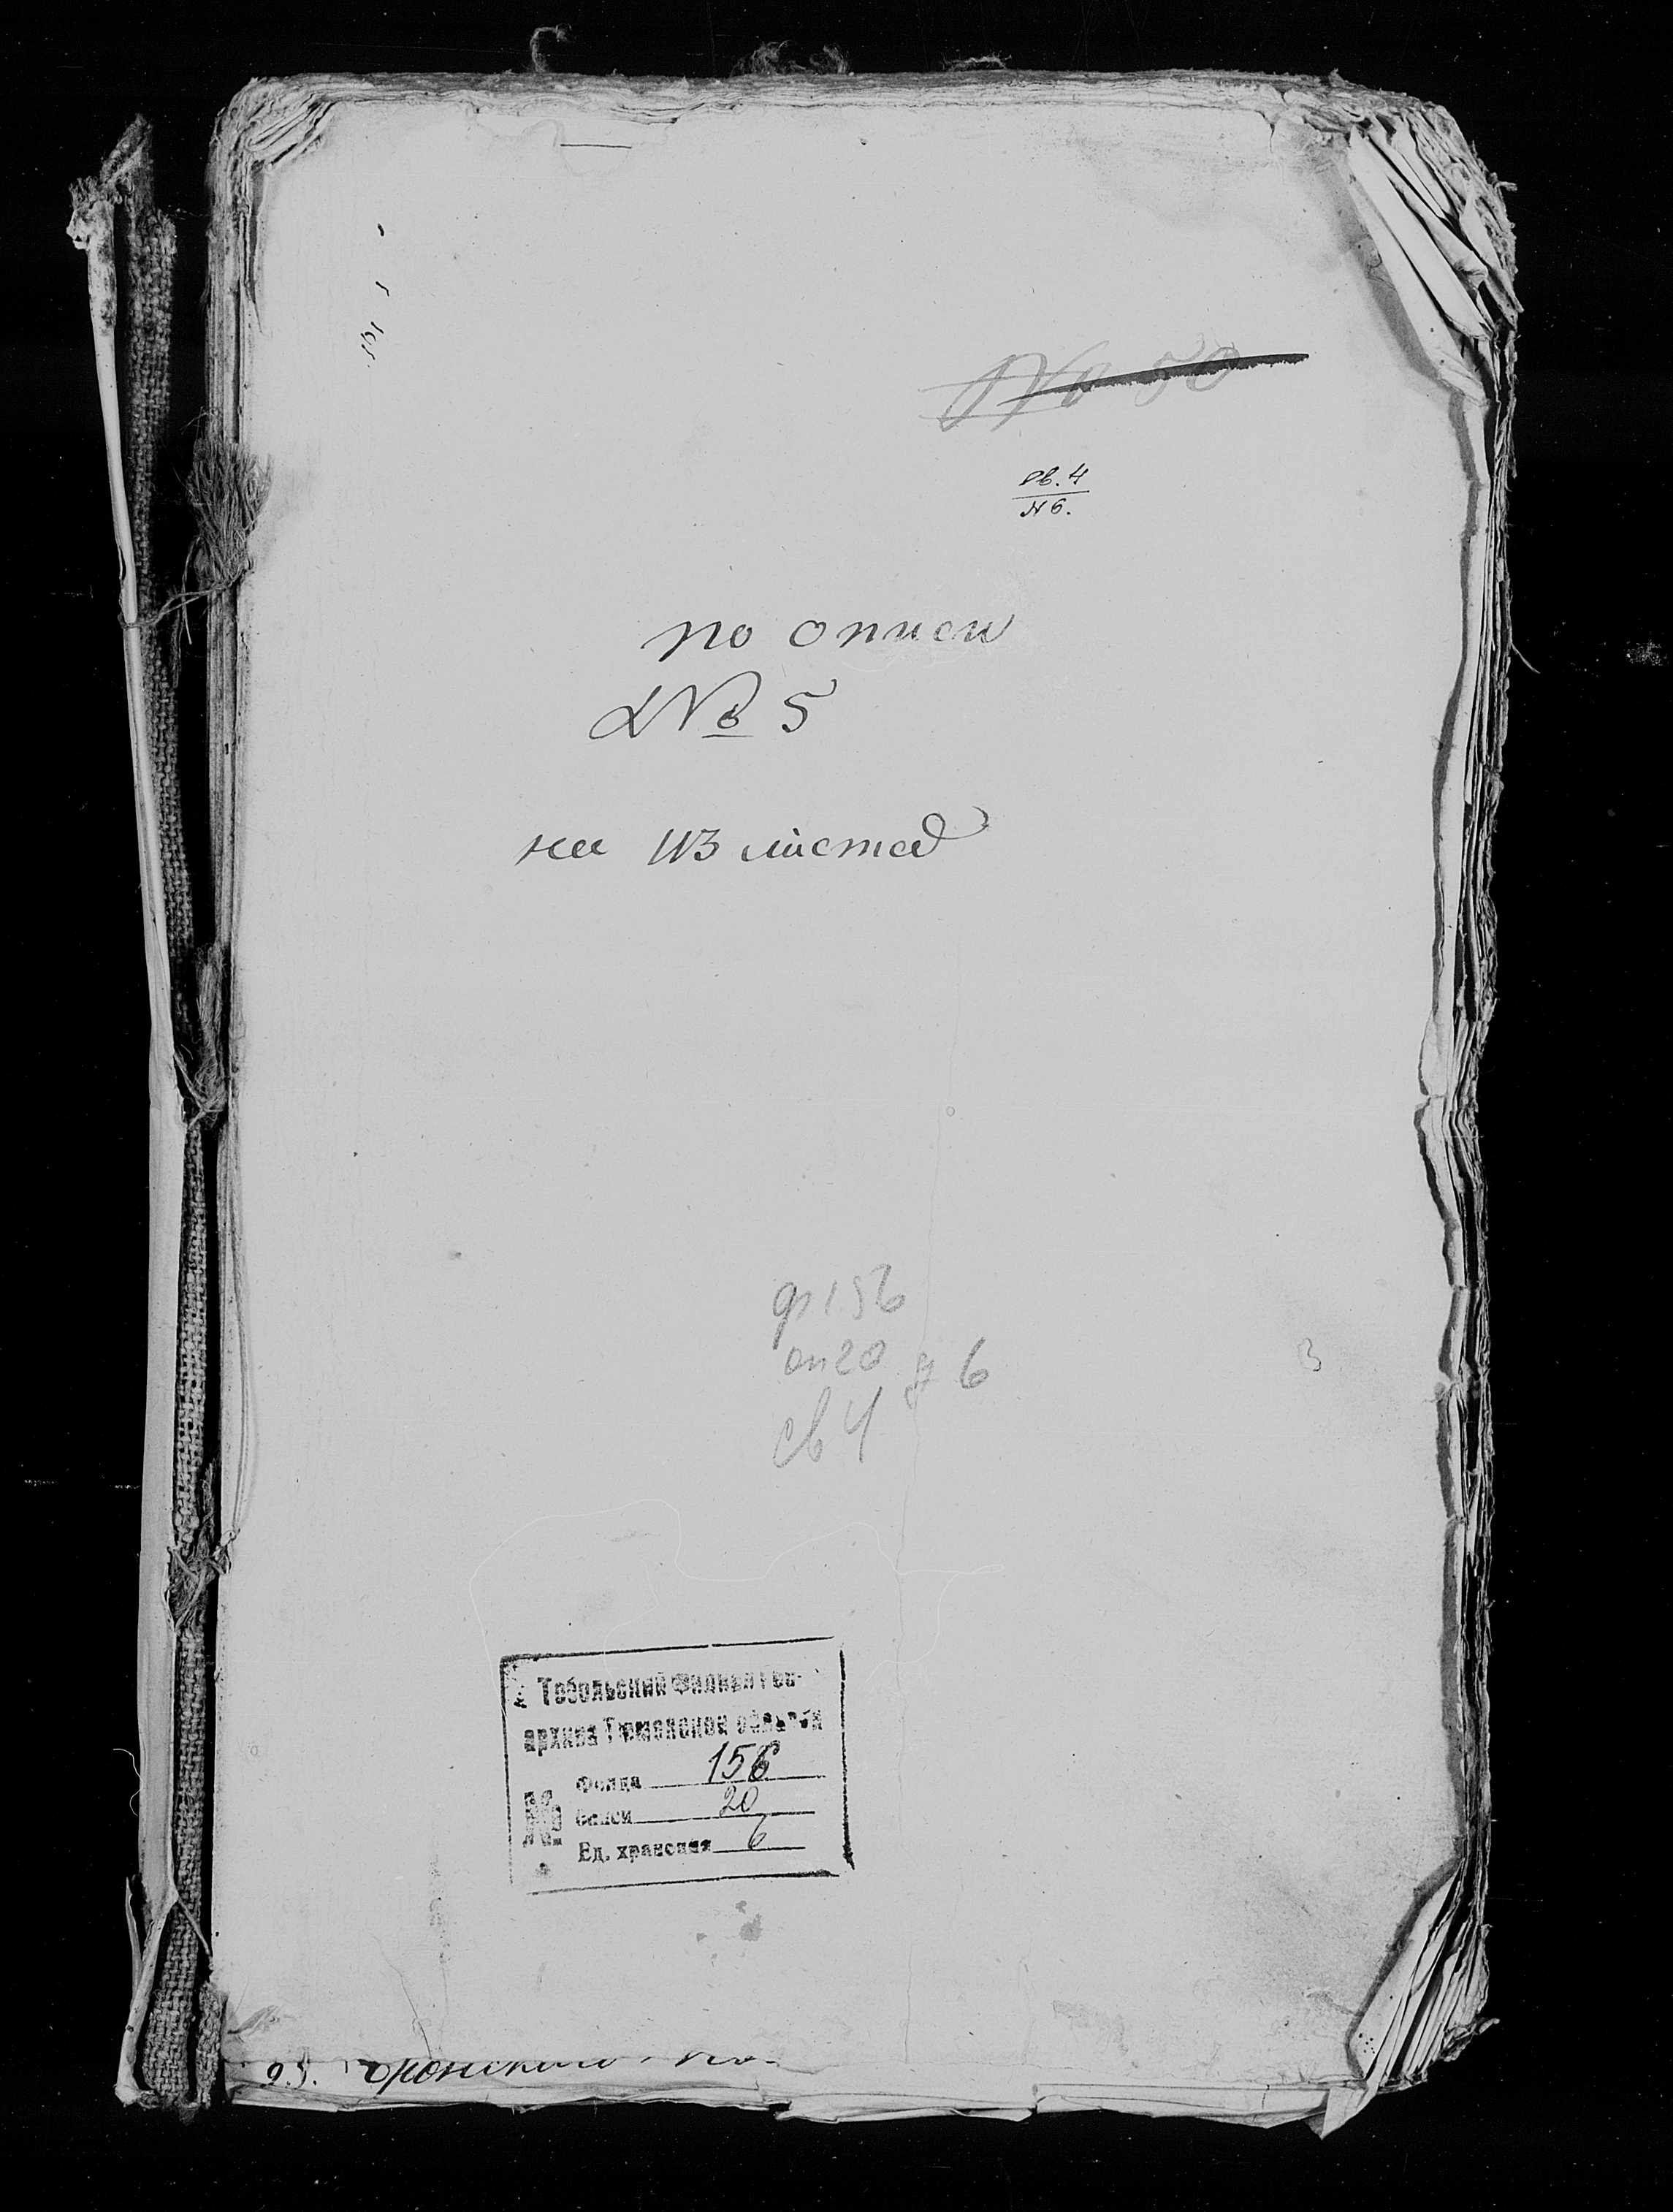 № 50
Св. 4
N 6.
по описи
№ 5
на 113 листах
ф 156
оп 20 д 6
св 4
3
Тобольский филиал Гос-
архива Тюменской области
Фонда 156
№ Описи 20
Ед. хранения 6